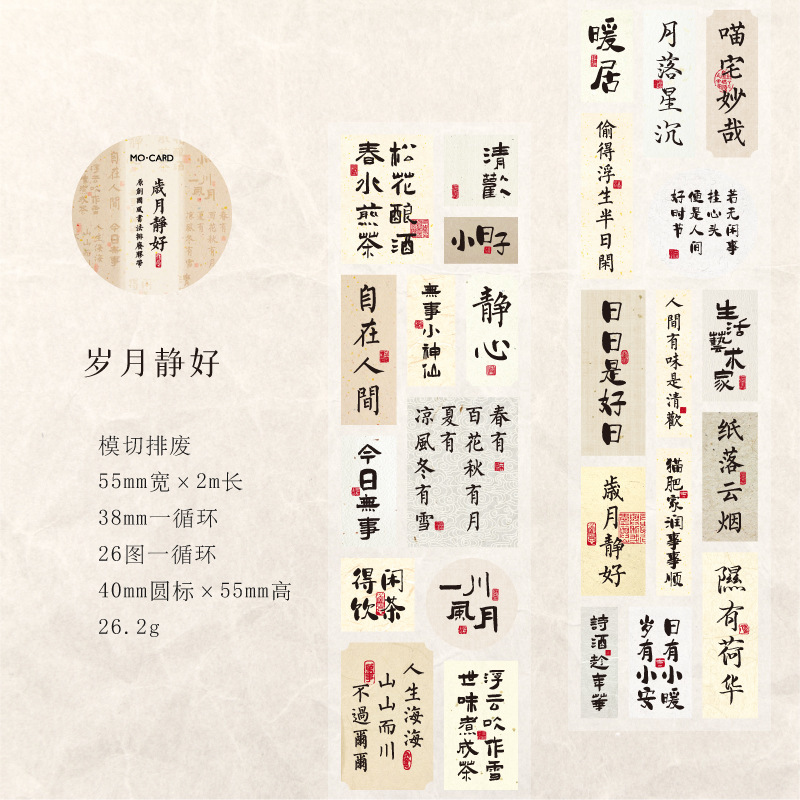 MO·CARD
歲月靜好
原創國風書法排廢膠帶
岁月静好
模切排废
55mm宽×2m长
38mm一循环
26图一循环
40mm圆标×55mm高
26.2g
松花酿酒
春水煎茶
清歡
小日子
自在人間
無事小神仙
静心
春有
百花秋有月
夏有
凉風冬有雪
今日無事
闲茶
得饮
一川
風月
人生海海
山山而川
不過爾爾
浮云吹作雪
世味煮成茶
暖居
月落星沉
喵宅妙哉
偷得浮生半日閑
若无闲事
挂心头
便是人间
好时节
日日是好日
人間有味是清歡
生活
藝术家
纸落云烟
歲月静好
猫肥家润事事顺
隰有荷华
詩酒趁年華
日有小暖
岁有小安